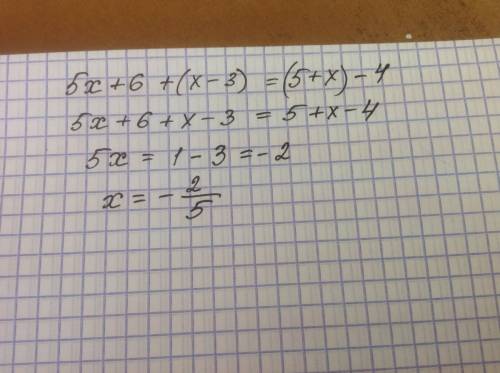 5x+6 +(x-3) =(5+x)-4
5x+6+x-3 = 5+x-4
5x = 1-3 =-2
x = - 2/5